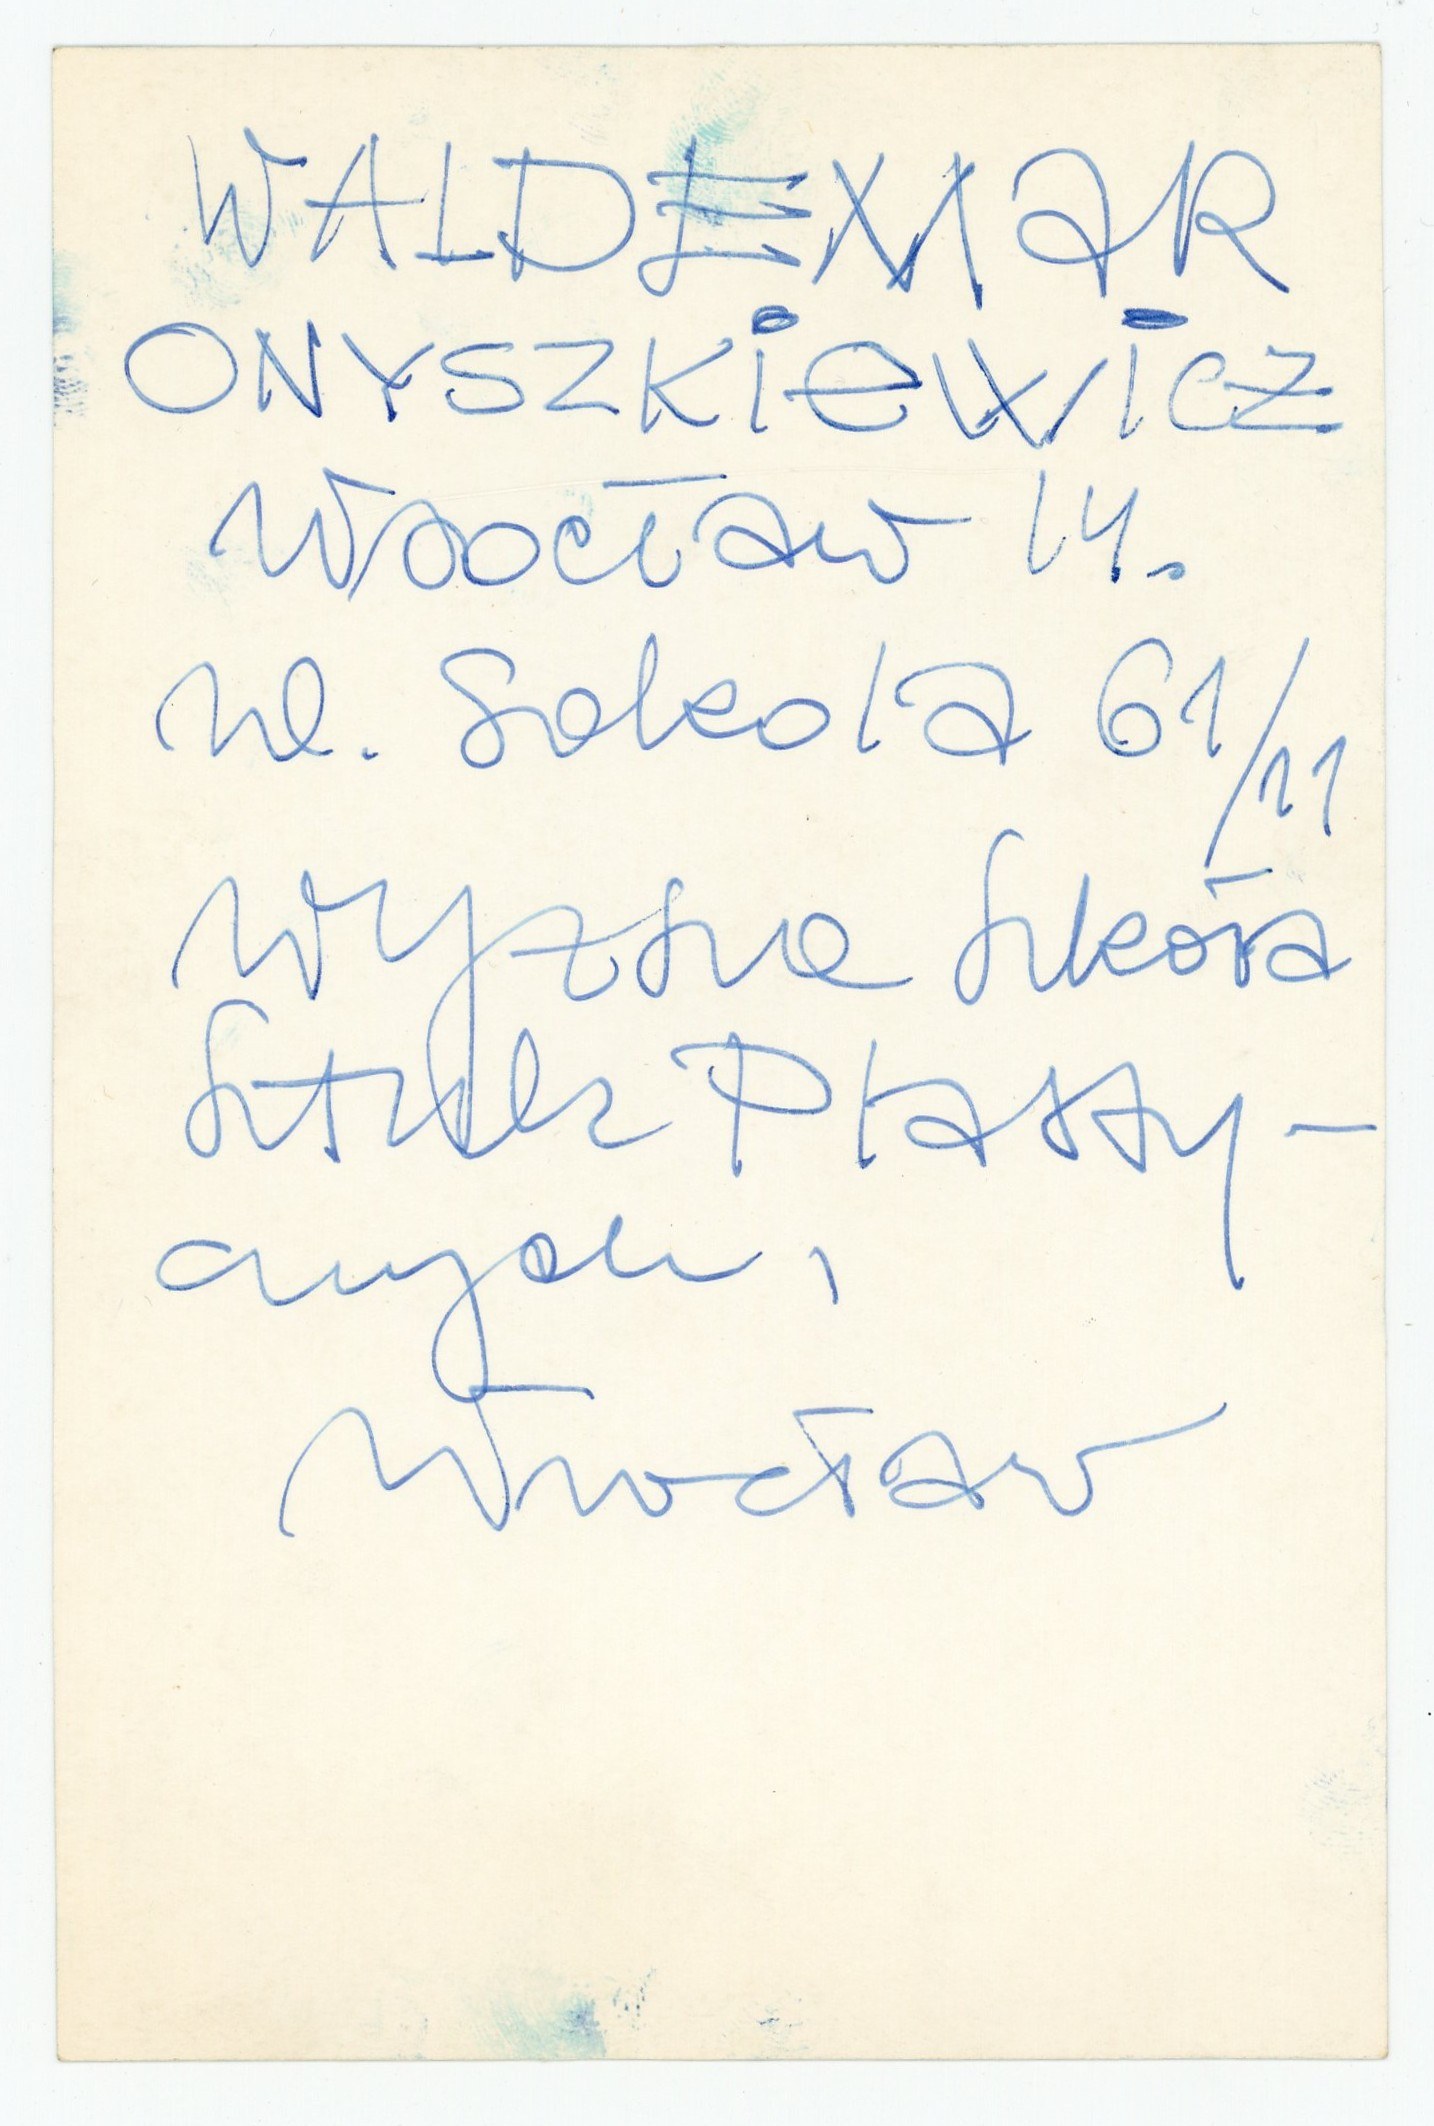 WALDEMAR
ONYSZKIEWICZ
Wrocław 14.
ul. Sokola 61/11
Wyższa Szkoła
Sztuk Plasty-
cznych,
Wrocław